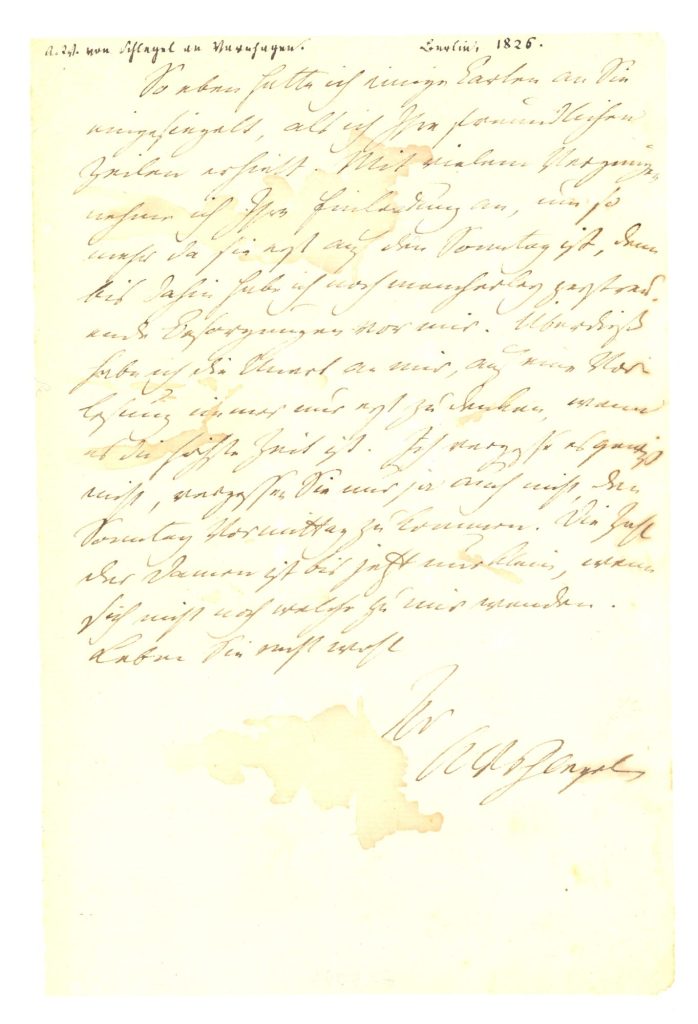 A. W. von Schlegel an Varnhagen. Berlin, 1826.
So eben hatte ich einige Carten an Sie
eingesiegelt, als ich Ihre freundlichen
Zeilen erhielt. Mit vielem Vergnügen
nehme ich Ihre Einladung an, um so
mehr da sie erst auf den Sonntag ist, denn
bis dahin habe ich noch mancherley zerstreu-
ende Besorgungen vor mir. Überdieß
habe ich die Unart an mir, auf eine Vor-
lesung immer nur erst zu denken, wenn
es die höchste Zeit ist. Ich vergesse es gewiß
nicht, vergessen Sie nur ja auch nicht, den
Sonntag Vormittag zu kommen. Die Zahl
der Damen ist bis jetzt nur klein, wenn
sich nicht noch welche zu mir wenden.
Leben Sie recht wohl
Ihr
AWvSchlegel